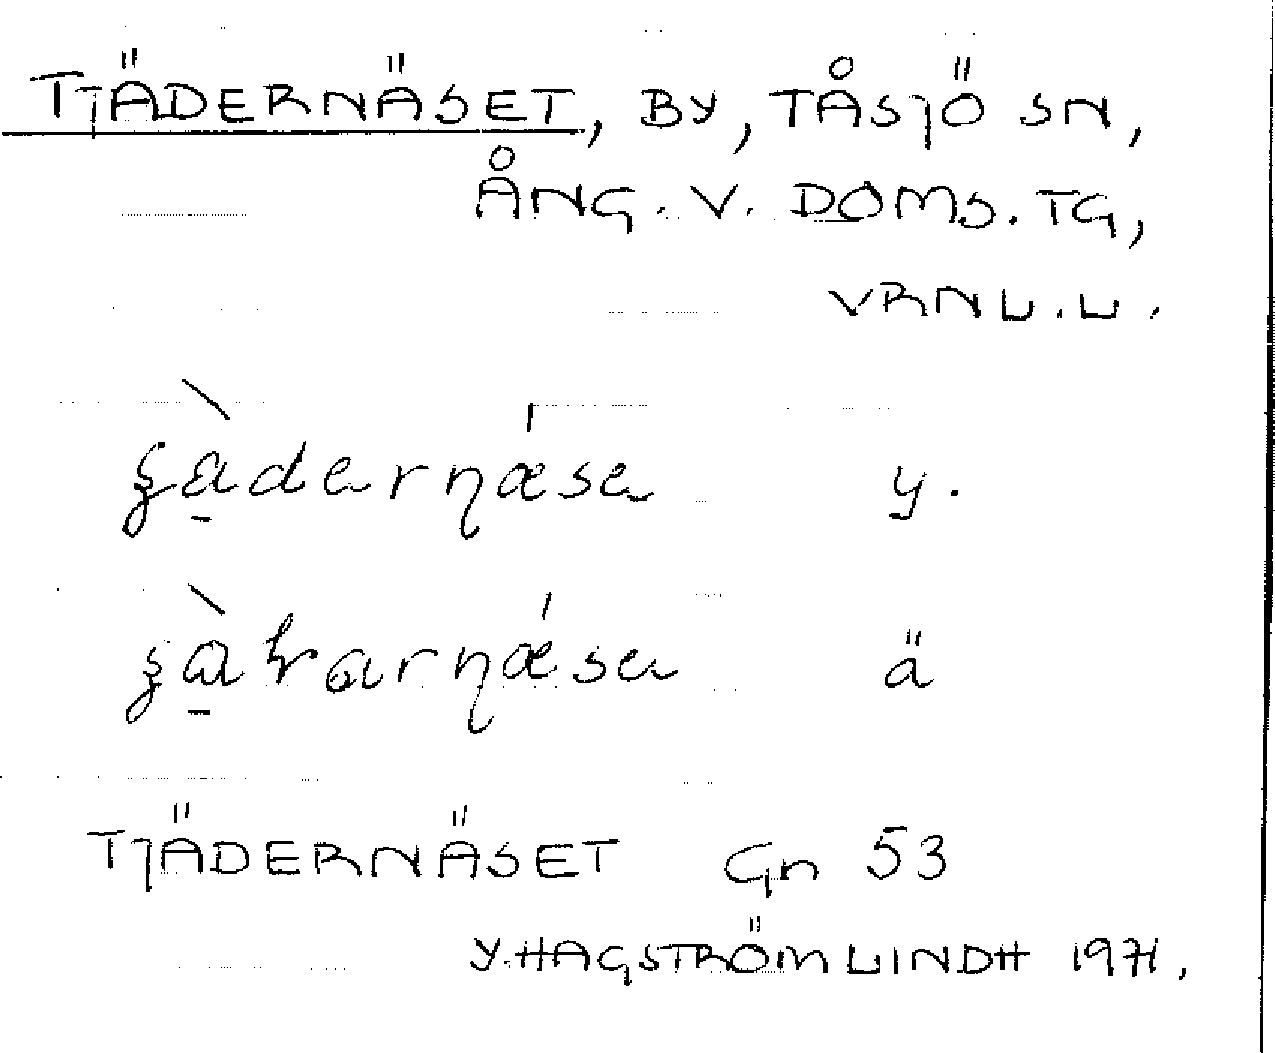 TJÄDERNÄSET, BY, TÅSJÖ SN,
ÅNG. V. DOMS. TG,
VRNL. L.
y.
ä
TJÄDERNÄSET Gn 53
Y. HAGSTRÖM LINDH 1971.